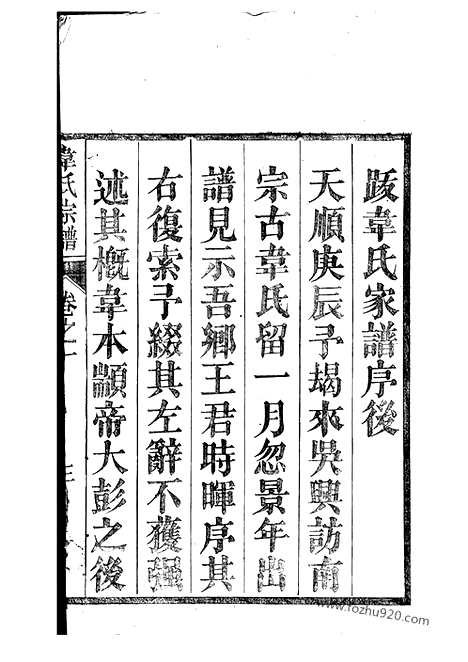 跋韋氏家譜序後
天順庚辰予朅來吳興訪南
宗古韋氏留一月忽景年出
譜見示吾鄉王君時暉序其
右復索予綴其左辭不獲强
述其概韋本顓帝大彭之後
韋氏宗譜 卷之一
www.fozhu979.com